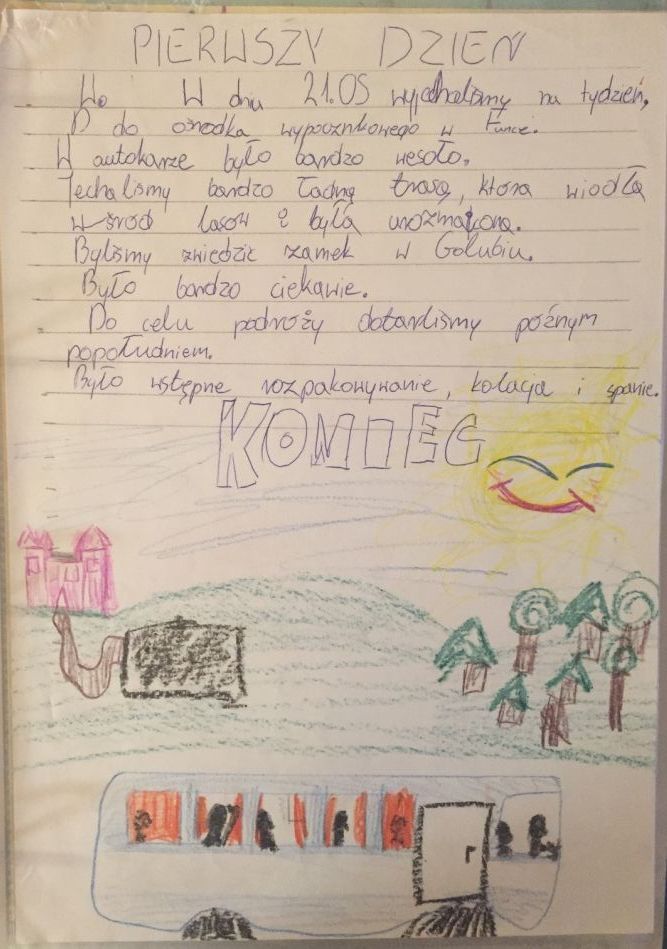 PIERWSZY DZIEN
W dniu 21.05 wyjechalismy na tydzień,
do osrodka wypocznkowego w Funce.
W autokarze było bardzo wesoło.
Jechalismy bardzo ładną trasą, ktora wiodła
wśrod lasow i była urozmaicona.
Bylismy zwiedzic zamek w Golubiu.
Było bardzo ciekawie.
Do celu podroży dotarlismy poźnym
popołudniem.
Było wstępne rozpakowywanie, kolacja i spanie.
KONIEC